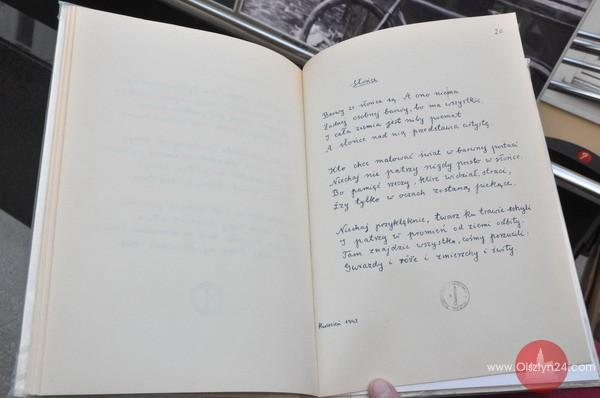 20
Słońce
Barwy ze słońca są. A ono nie ma
Żadnej osobnej barwy, bo ma wszystkie.
I cała ziemia jest niby poemat
A słońce nad nią przedstawia artystę.
Kto chce malować świat w barwnej postaci
Niechaj nie patrzy nigdy prosto w słońce.
Bo pamięć rzeczy, które widział, straci,
Łzy tylko w oczach zostaną piekące.
Niechaj przyklęknie, twarz ku trawie schyli
I patrzy w promień od ziemi odbity.
Tam znajdzie wszystko, cośmy porzucili:
Gwiazdy i róże i zmierzchy i świty.
Kwiecień 1943
www.Olsztyn24.com